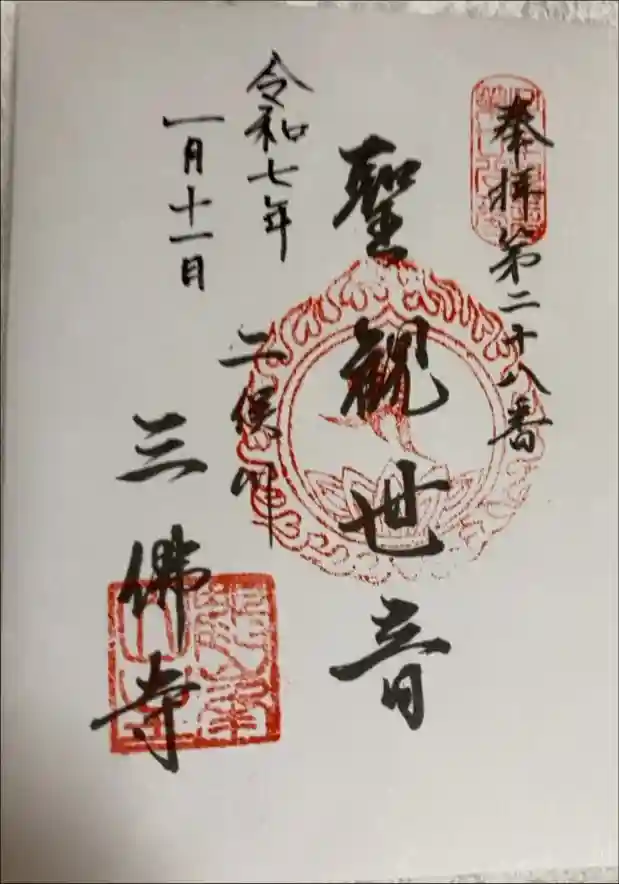 奉拝第二十八番
聖観世音
令和七年
一月十一日
二俣川
三佛寺